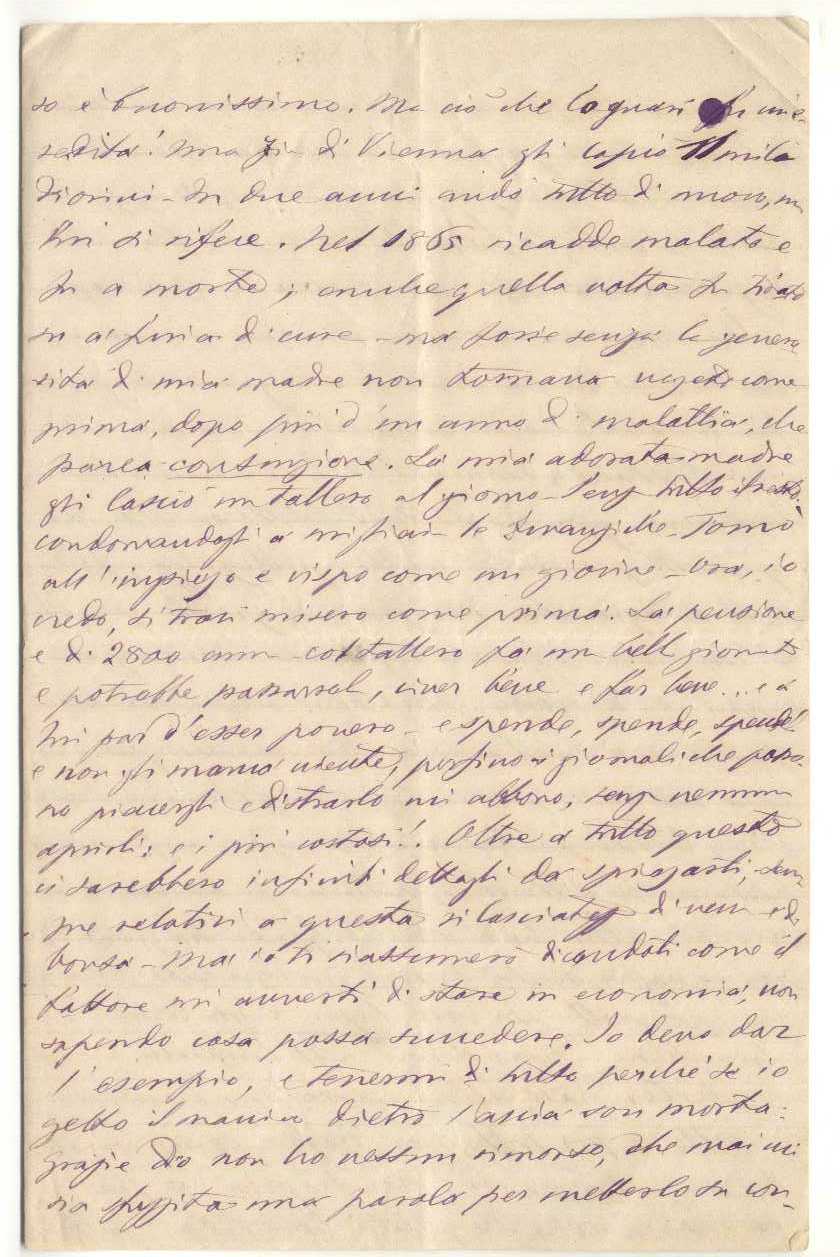 so è buonissimo. Ma ciò che lo guarì fu un'e-
redità! Una Zia di Vienna gli lasciò 11 mila
fiorini - In due anni andò tutto di nuovo, ma
lui si rifece. Nel 1865 ricadde malato e
fu a morte; anche quella volta fu tirato
su a furia di cure - ma forse senza la genero-
sità di mia madre non tornava vegeto come
prima, dopo più d'un anno di malattia, che
parea consunzione. La mia adorata madre
gli lasciò un tallero al giorno - senza tutto il resto,
condonandogli a migliaia le - Tornò
all'impiego e vispo come un giovine - Ora, io
credo, si trovi misero come prima. La pensione
è di 2800 annui - col tallero fa un bell
e potrebbe passarsela, viver bene e far bene... e a
lui par d'esser povero - e spende, spende, spende!
e non gli manca niente, perfino i giornali che posso-
no piacergli e distrarlo mi abbono, senza nemmen
aprirli; e i più costosi! Oltre a tutto questo
ci sarebbero infiniti dettagli da spiegarti, sem-
pre relativi a questa rilasciatezza di
borsa - Ma io ti riassumerò dicendoti come il
fattore mi avvertì di stare in economia, non
sapendo cosa possa succedere. Io devo dar
l'esempio, e tenermi di tutto perché se io
getto il manico dietro l'ascia son morta:
Grazie a Dio non ho nessun rimorso, che mai mi
sia sfuggita una parola per metterlo su con-